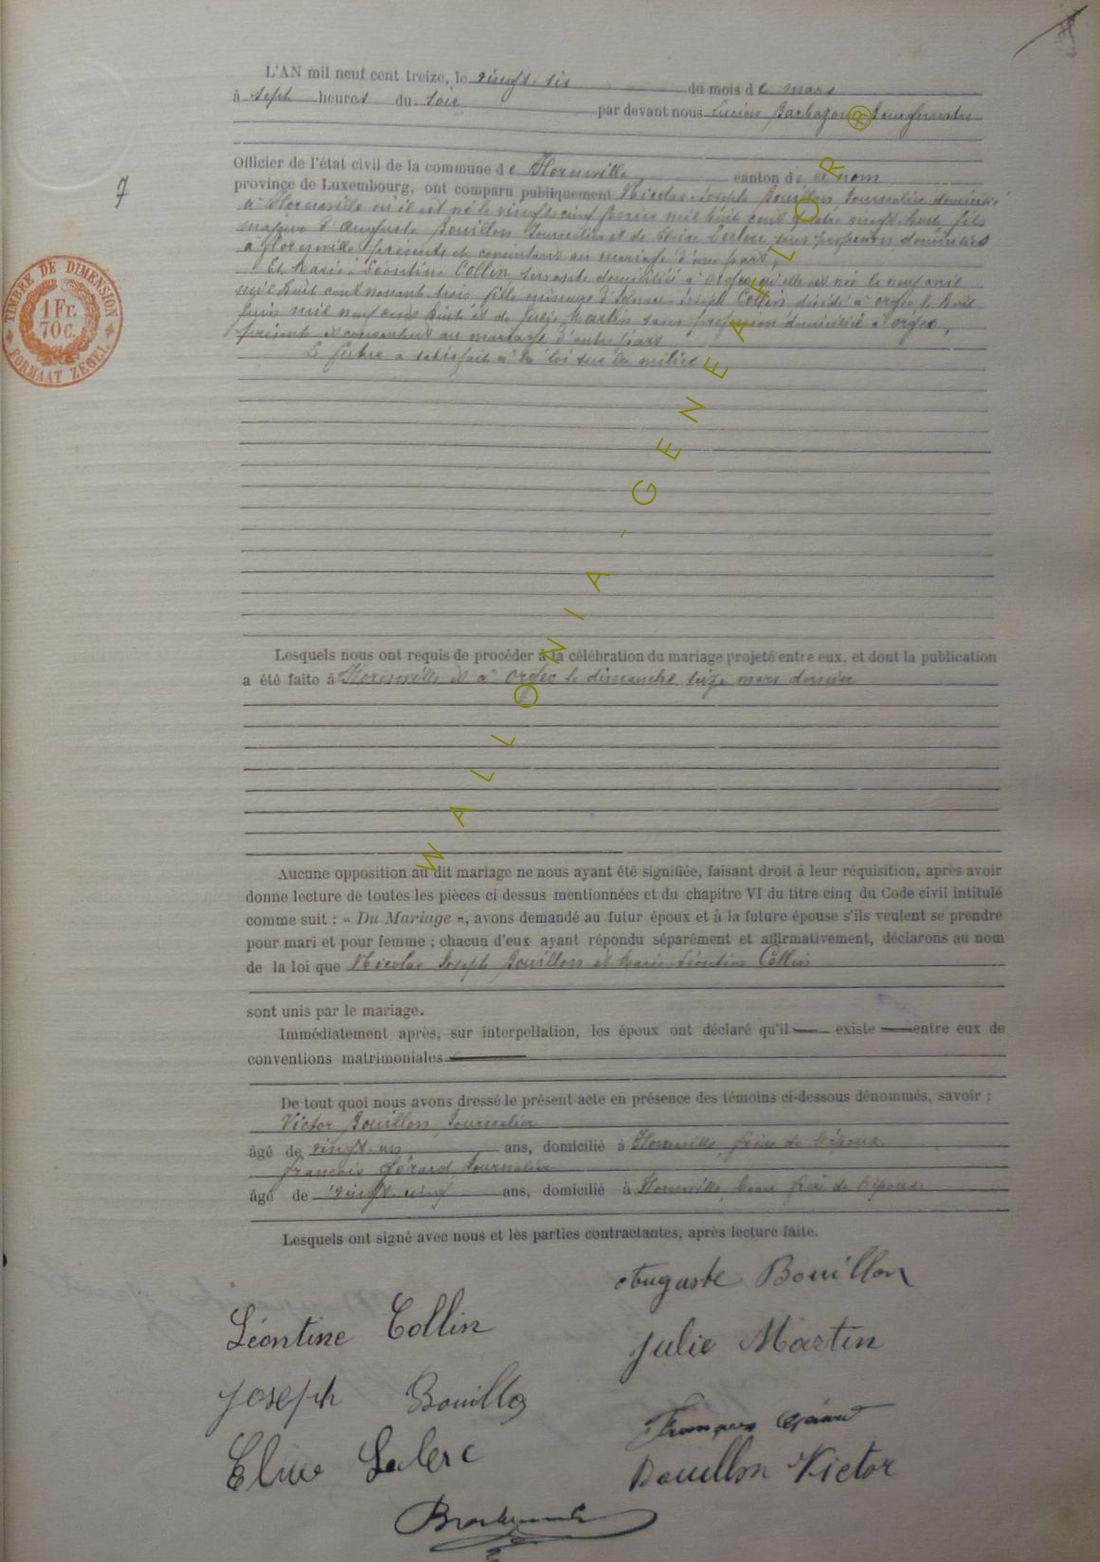 L'AN mil neuf cent treize, le vingt-six du mois de mars
à sept heures du soir par devant nous Lucien Bourgmestre
Officier de l'état civil de la commune de Florenville, canton de ce nom
province de Luxembourg, ont comparu publiquement Nicolas-Joseph Bouillon Journalier domicilié
à Florenville où il est né le vingt cinq février mil huit cent quatre vingt-huit, fils
majeur d'Auguste Bouillon Journalier et de Elise Leclerc sans profession domiciliés
à Florenville présents et consentant au mariage d'une part,
Et Marie-Léontine Collin servante domiciliée à Orgeo qu'elle est née le neuf avril
mil huit cent nonante trois, fille mineure d'Joseph Collin décédé à Orgeo le huit
juin mil neuf cent huit et de Julie Martin sans profession domiciliée à Orgeo,
présente et consentant au mariage d'autre part
Le futur a satisfait à la loi sur la milice
TIMBRE DE DIMENSION
1 Fr.
70 c.
FORMAAT ZEGEL
7
Lesquels nous ont requis de procéder à la célébration du mariage projeté entre eux, et dont la publication
a été faite à Florenville et à Orgeo le dimanche seize mars dernier
Aucune opposition au dit mariage ne nous ayant été signifiée, faisant droit à leur réquisition, après avoir
donne lecture de toutes les pièces ci dessus mentionnées et du chapitre VI du titre cinq du Code civil intitulé
comme suit : « Du Mariage », avons demandé au futur époux et à la future épouse s'ils veulent se prendre
pour mari et pour femme ; chacun d'eux ayant répondu séparément et affirmativement, déclarons au nom
de la loi que Nicolas Joseph Bouillon et Marie-Léontine Collin
sont unis par le mariage.
Immédiatement après, sur interpellation, les époux ont déclaré qu'il existe entre eux de
conventions matrimoniales
De tout quoi nous avons dressé le présent acte en présence des témoins ci-dessous dénommés, savoir :
Victor Bouillon, Journalier
âgé de vingt-un ans, domicilié à Florenville, frère de l'époux
François Gérard, Journalier
âgé de vingt cinq ans, domicilié à Florenville, beau frère de l'épouse
Lesquels ont signé avec nous et les parties contractantes, après lecture faite.
Auguste Bouillon
Léontine Collin
Julie Martin
Joseph Bouillon
François Gérard
Elise Leclerc
Bouillon Victor
WALLONIA-GENEAFLOR®